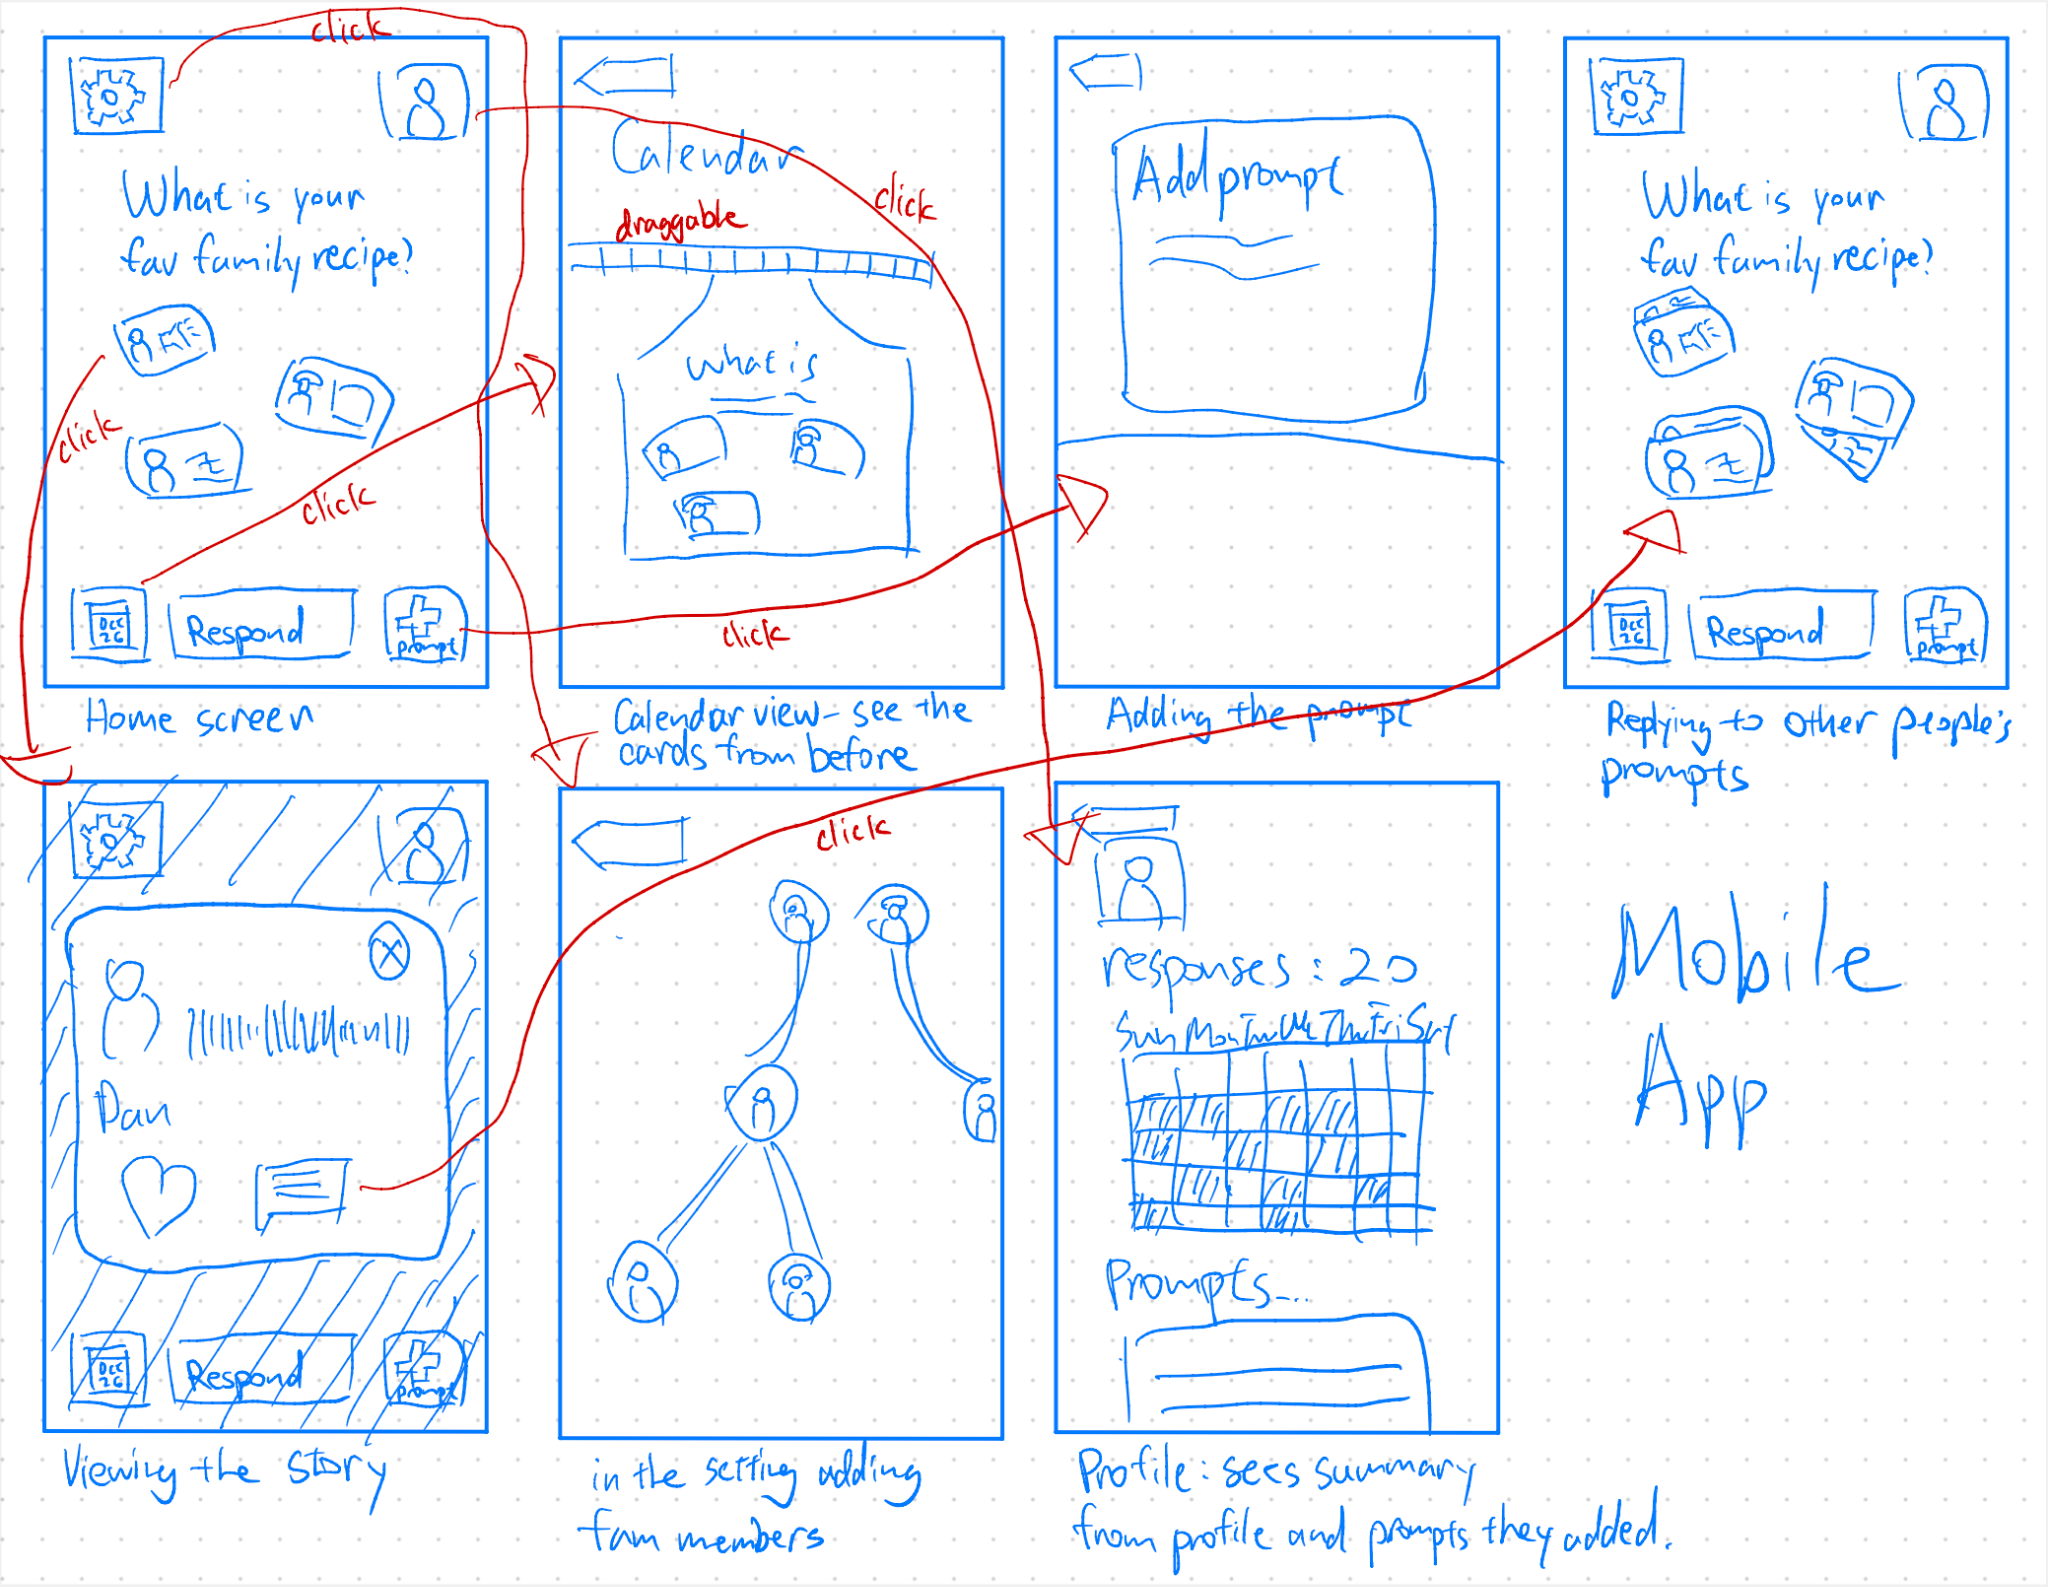 click
What is your
fav family recipe?
click
click
DEC
26
Respond
prompt
Home screen
Calendar
draggable
click
what is
click
Calendar view - see the
cards from before
Add prompt
Adding the prompt
What is your
fav family recipe?
DEC
26
Respond
prompt
Replying to other people's
prompts
Dan
DEC
26
Respond
prompt
Viewing the story
click
in the setting adding
fam members
responses : 20
Sun Mon Tue We Thu Fri Sat
Prompts...
Profile: sees summary
from profile and prompts they added.
Mobile
App